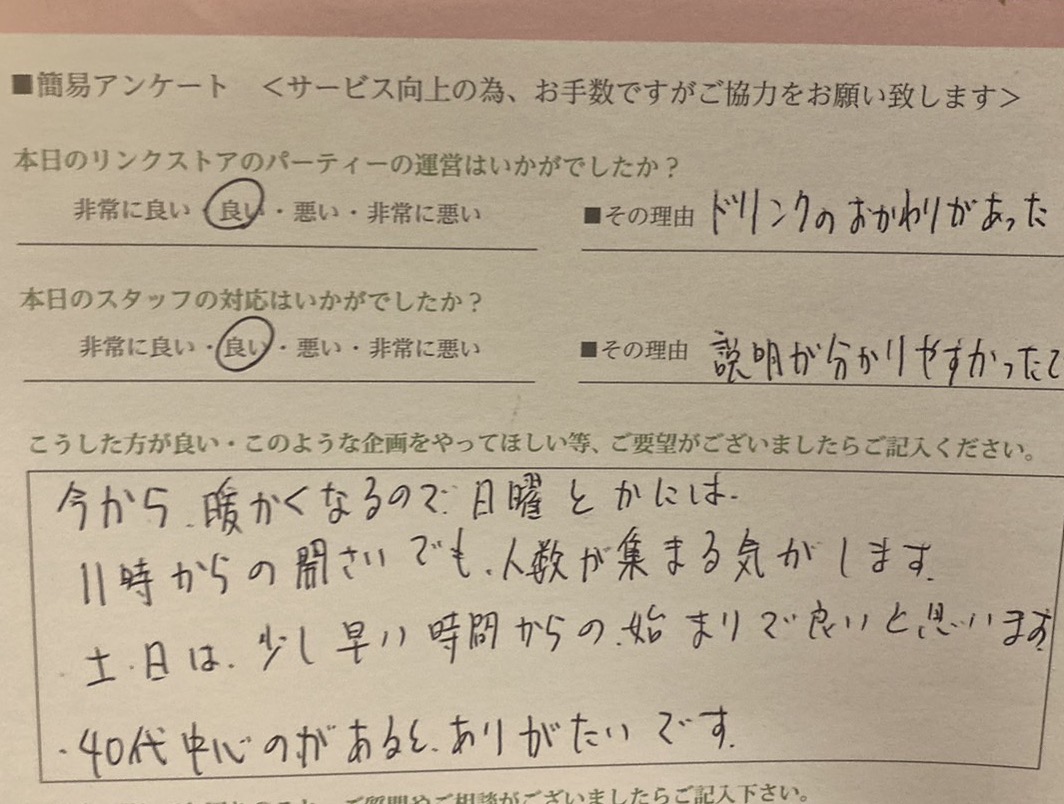 ■簡易アンケート　＜サービス向上の為、お手数ですがご協力をお願い致します＞
本日のリンクストアのパーティーの運営はいかがでしたか？
非常に良い・良い・悪い・非常に悪い　■その理由 ドリンクのおかわりがあった
本日のスタッフの対応はいかがでしたか？
非常に良い・良い・悪い・非常に悪い　■その理由 説明が分かりやすかった
こうした方が良い・このような企画をやってほしい等、ご要望がございましたらご記入ください。
今から、暖かくなるので、日曜とかには、
11時からの開さいでも、人数が集まる気がします。
・土、日は、少し早い時間からの、始まりで良いと思います
・40代中心のがあると、ありがたいです。
ご質問やご相談がございましたらご記入下さい。